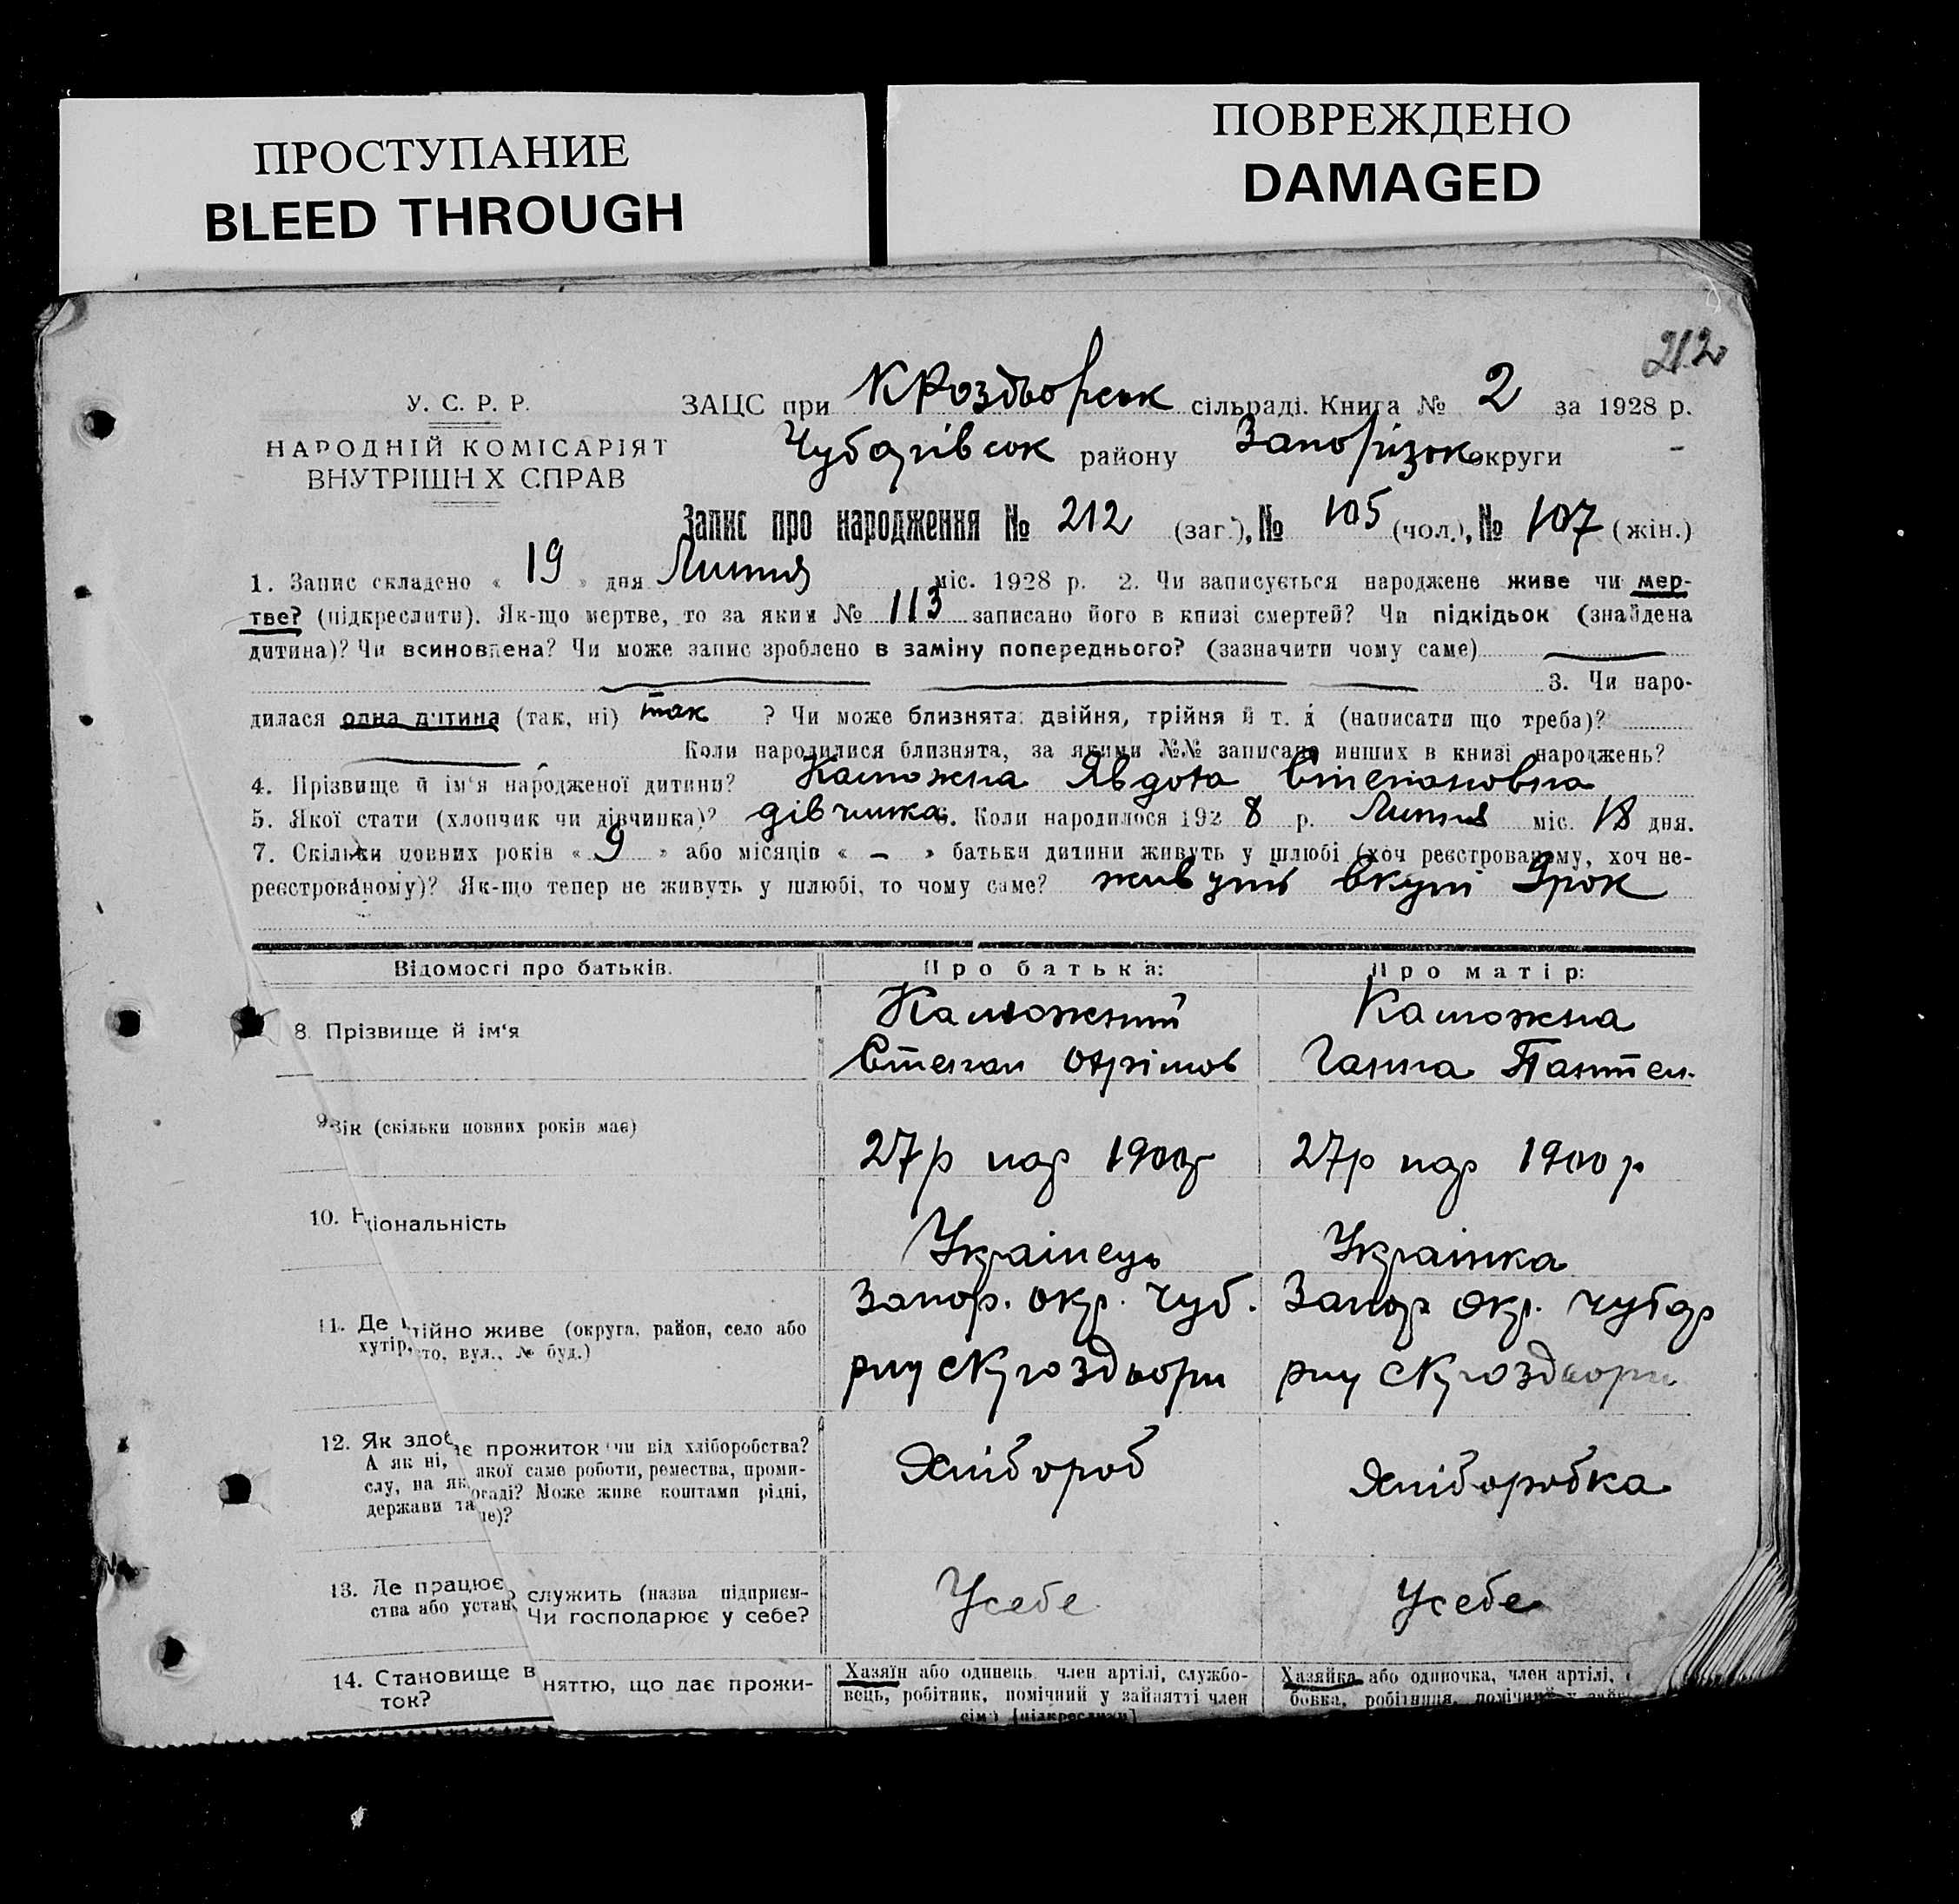 ПРОСТУПАНИЕ
BLEED THROUGH
ПОВРЕЖДЕНО
DAMAGED
212
У. С. Р. Р.
НАРОДНІЙ КОМІСАРІЯТ
ВНУТРІШН Х СПРАВ
ЗАЦС при сільраді. Книга № 2 за 1928 р.
Чубарівськ району Запорізьк округи
Запис про народження № 212 (заг.), № 105 (чол.), № 107 (жін.)
1. Запис складено « 19 » дня Липня міс. 1928 р. 2. Чи записується народжене живе чи мер-
тве? (підкреслити). Як-що мертве, то за яким № 113 записано його в книзі смертей? Чи підкідьок (знайдена
дитина)? Чи всиновлена? Чи може запис зроблено в заміну попереднього? (зазначити чому саме)
3. Чи наро-
дилася одна дитина (так, ні) так ? Чи може близнята: двійня, трійня й т. д (написати що треба)?
Коли народилися близнята, за якими №№ записано инших в книзі народжень?
4. Прізвище й ім'я народженої дитини? Явдоха Степановна
5. Якої стати (хлопчик чи дівчинка)? дівчинка 6. Коли народилося 192 8 р. Липня міс. 18 дня.
7. Скільки повних років « 9 » або місяців « – » батьки дитини живуть у шлюбі (хоч реєстрованому, хоч не-
реєстрованому)? Як-що тепер не живуть у шлюбі, то чому саме? живуть вкупі 9 рок
Відомості про батьків.
Про батька:
Про матір:
8. Прізвище й ім'я
Степан
Ганна Пантел.
9. Вік (скільки повних років має)
27 р нар 1900 р
27 р нар 1900 р
10. Н ціональність
Українець
Українка
11. Де тійно живе (округа, район, село або
хутір, то, вул., № буд.)
Запор. окр. Чуб.
Запор окр. Чубар
рну
рну
12. Як здоб ає прожиток чи від хліборобства?
А як ні, якої саме роботи, ремества, проми-
слу, на як посаді? Може живе коштами рідні,
держави та ше)?
Хлібороб
Хліборобка
13. Де працює служить (назва підприєм-
ства або устан Чи господарює у себе?
Усебе
Усебе
14. Становище в няттю, що дає прожи-
ток?
Хазяїн або одинець, член артілі, службо-
вець, робітник, помічний у зайнятті член
сім'ї [підкреслити]
Хазяйка або одиночка, член артілі,
бовка, робітниця, помічний у